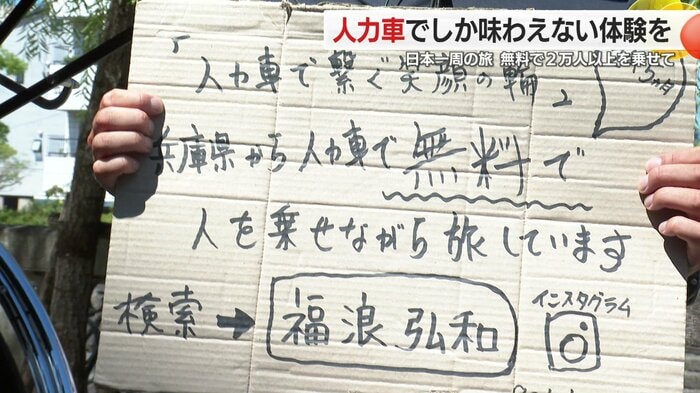 人力車でしか味わえない体験を
日本一周の旅 無料で2万人以上を乗せて
「人力車で繋ぐ笑顔の輪」
兵庫県から人力車で無料で
人を乗せながら旅しています
検索→福浪弘和
インスタグラム